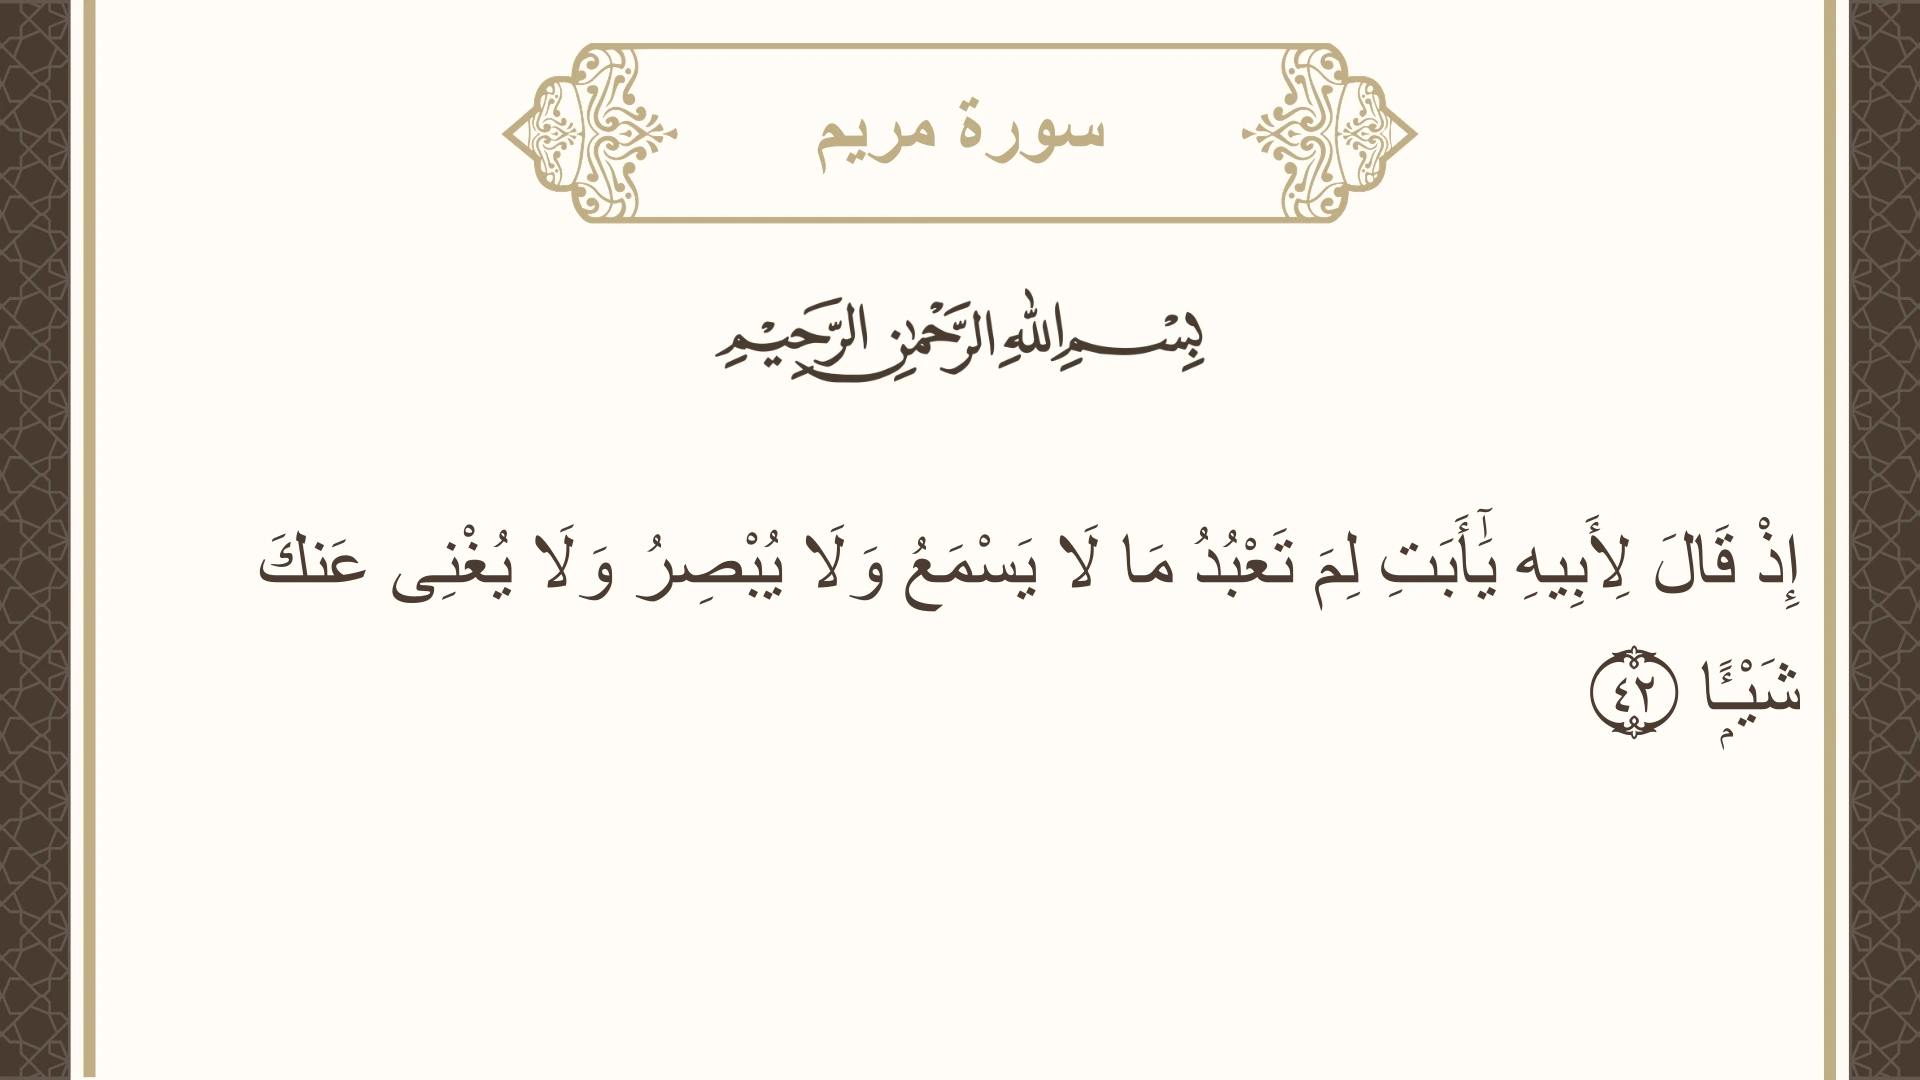 سورة مريم
بِسْمِ اللهِ الرَّحْمٰنِ الرَّحِيْمِ
إِذْ قَالَ لِأَبِيهِ يَٰٓأَبَتِ لِمَ تَعْبُدُ مَا لَا يَسْمَعُ وَلَا يُبْصِرُ وَلَا يُغْنِى عَنكَ
شَيْـًٔاۭ ٤٢